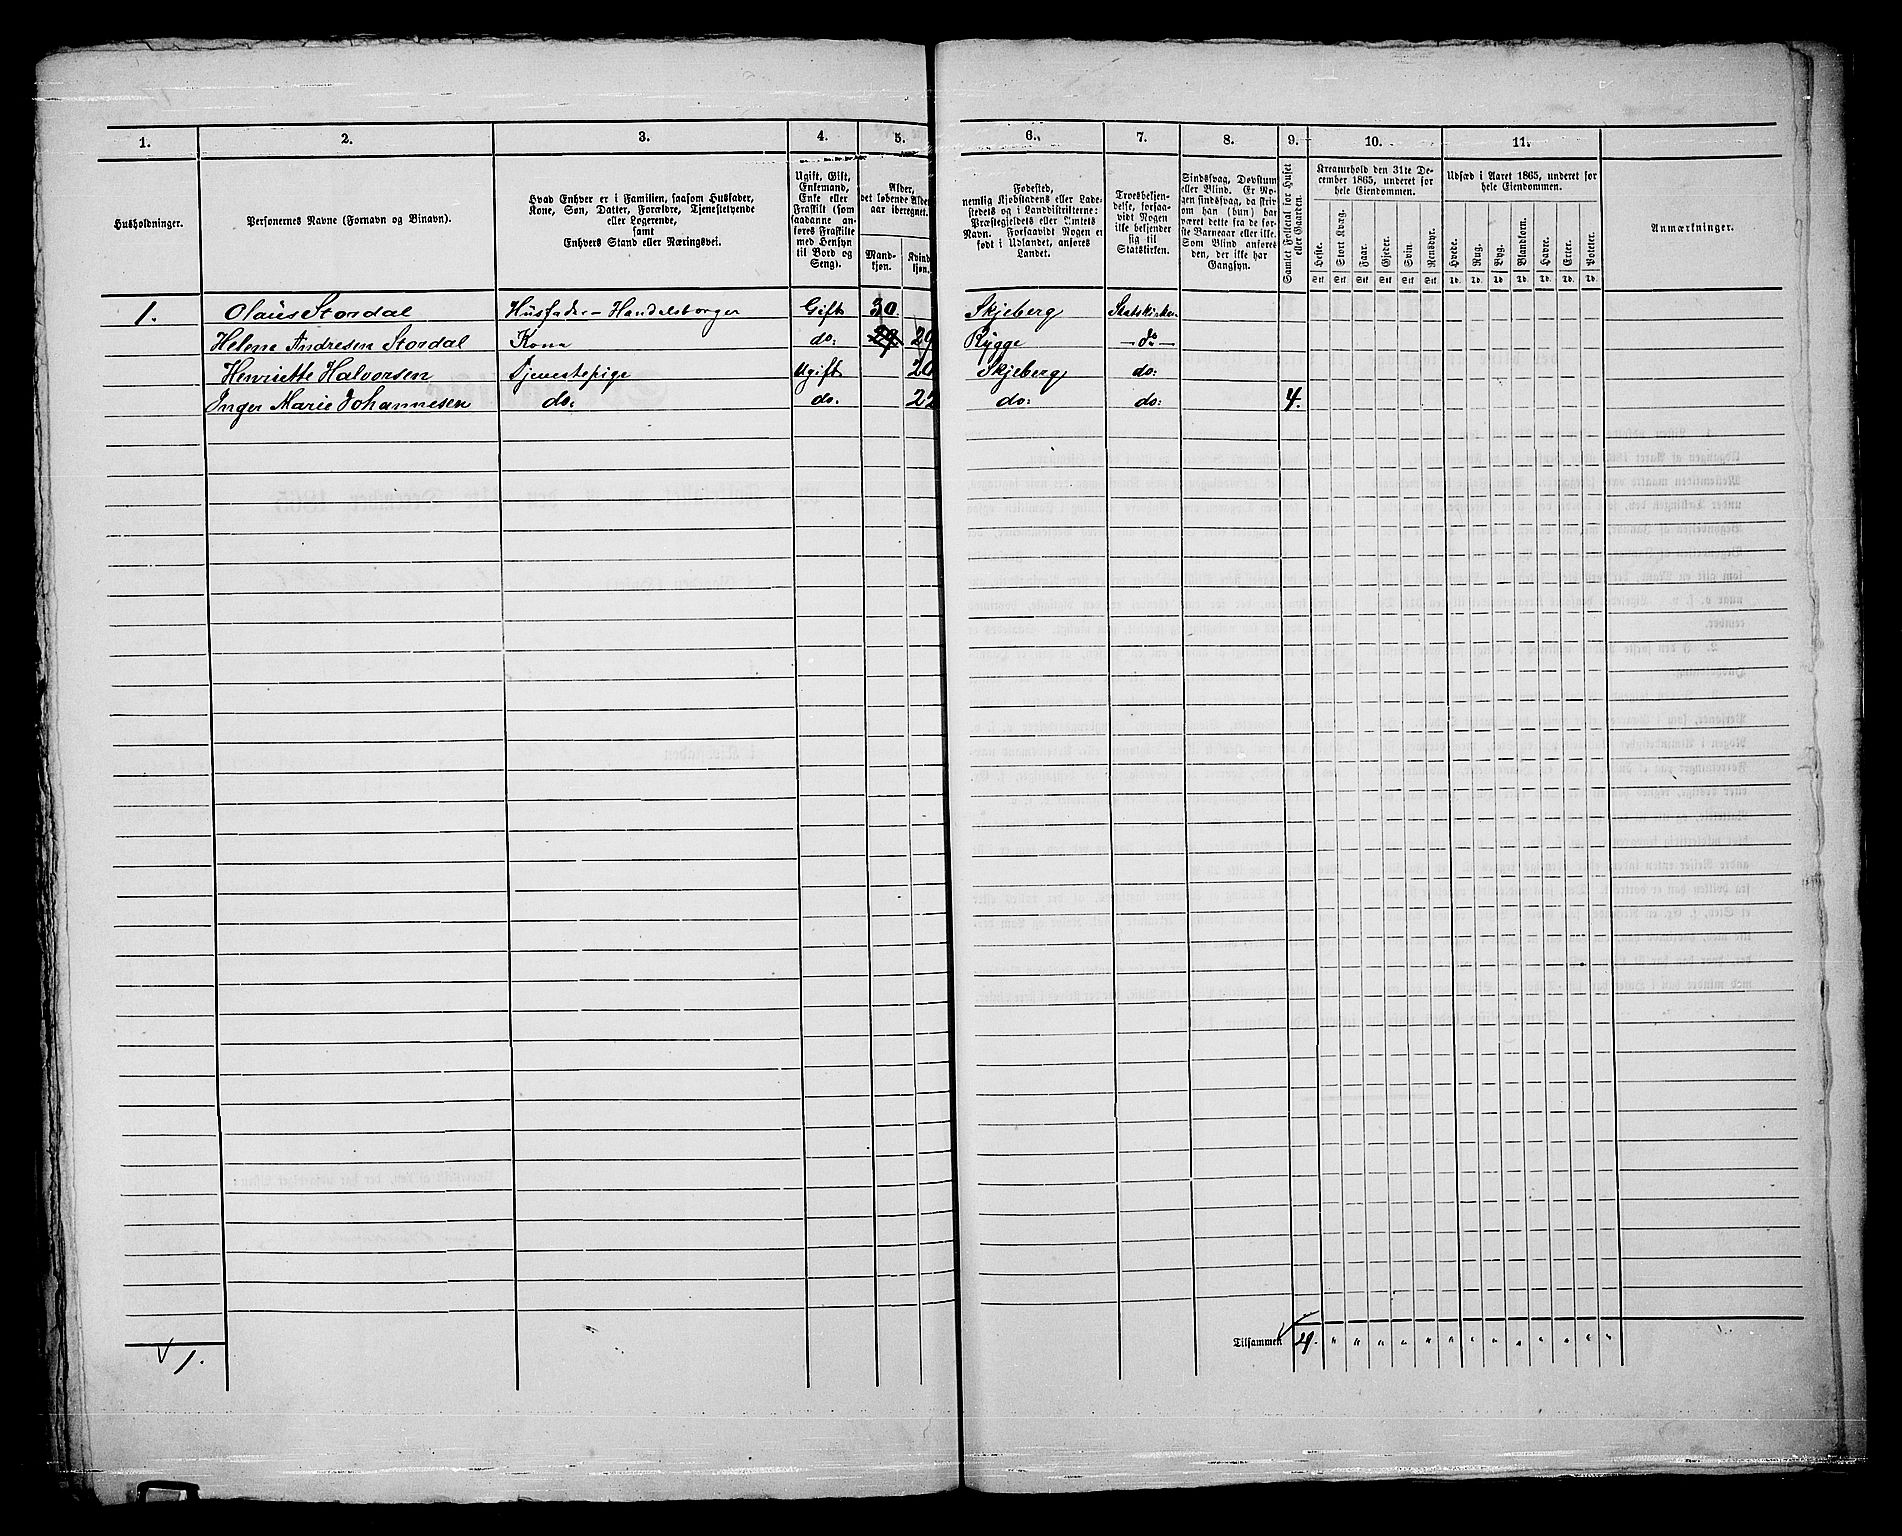 1. 2. 3. 4. 5. 6. 7. 8. 9. 10. 11.
Husholdninger.
Personernes Navne (Fornavn og Binavn).
Hvad Enhver er i Familien, saasom Husfader,
Kone, Søn, Datter, Forældre, Tjenestetyende
eller Logerende,
samt
Enhvers Stand eller Næringsvei.
Ugift, Gift,
Enkemand,
Enke eller
Fraskilt (som
saadanne an-
føres Fraskilte
med Hensyn
til Bord og
Seng).
Alder,
det løbende Alders-
aar iberegnet.
Mand-
kjøn.
Kvind
kjøn.
Fødested,
nemlig Kjøbstadens eller Lade-
stedets og i Landdistrikterne:
Præstegjeldets eller Amtets
Navn. Forsaavidt Nogen er
født i Udlandet, anføres
Landet.
Troesbekjen-
delse, forsaa-
vidt Nogen
ikke bekjender
sig til
Statskirken.
Sindssvag, Døvstum
eller Blind. Er No-
gen sindssvag, da skriv
om han (hun) har
været dette fra de før-
ste Barneaar eller ikke.
Som Blind anføres
den, der ikke har
Gangsyn.
Samlet Folketal for Huset
eller Gaarden.
Kreaturhold den 31te De-
cember 1865, underet for
hele Eiendommen.
Heste. Stort Kvæg. Faar. Gjeder. Svin. Rensdyr.
Stk Stk Stk Stk Stk Stk
Udsæd i Aaret 1865, underet for
hele Eiendommen.
Hvede. Rug. Byg. Blandkorn. Havre. Erter. Poteter.
Td. Td. Td. Td. Td. Td. Td.
Anmærkninger.
1. Olaüs Stordal Husfader - Handelsborger Gift 30. Skjeberg Statskirken
Helene Andresen Stordal Kone do: 29 29 Rygge - do -
Henriette Halvorsen Tjenestepige Ugift 20 Skjeberg do:
Inger Marie Johannesen do. do. 22 do: do: 4.
1. Tilsammen 4. " " " " " " " " " " " " "